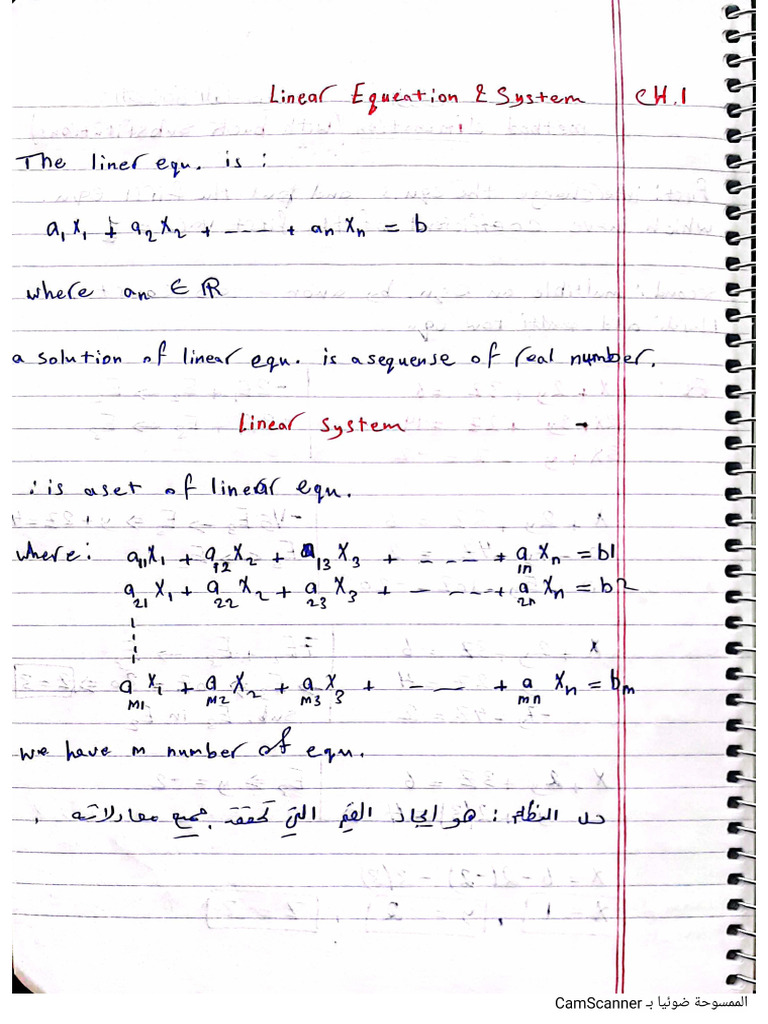 Linear Equeation & System CH.1
The liner equ. is :
a₁x₁ + a₂x₂ + ---- + anxn = b
where: an ∈ ℝ
a solution of linear equ. is a sequense of real number.
Linear system
: is aset of linear equ.
where: a₁₁x₁ + a₁₂x₂ + a₁₃x₃ + - -- -- + a₁ₙxₙ = b1
a₂₁x₁ + a₂₂x₂ + a₂₃x₃ + - --- -- + a₂ₙxₙ = b2
aM1x₁ + aM2x₂ + am3x₃ + - --- + amnxn = bm
we have m number of equ.
حل النظام : هو ايجاد القيم التي تحقق جميع معادلاته .
الممسوحة ضوئيا بـ CamScanner